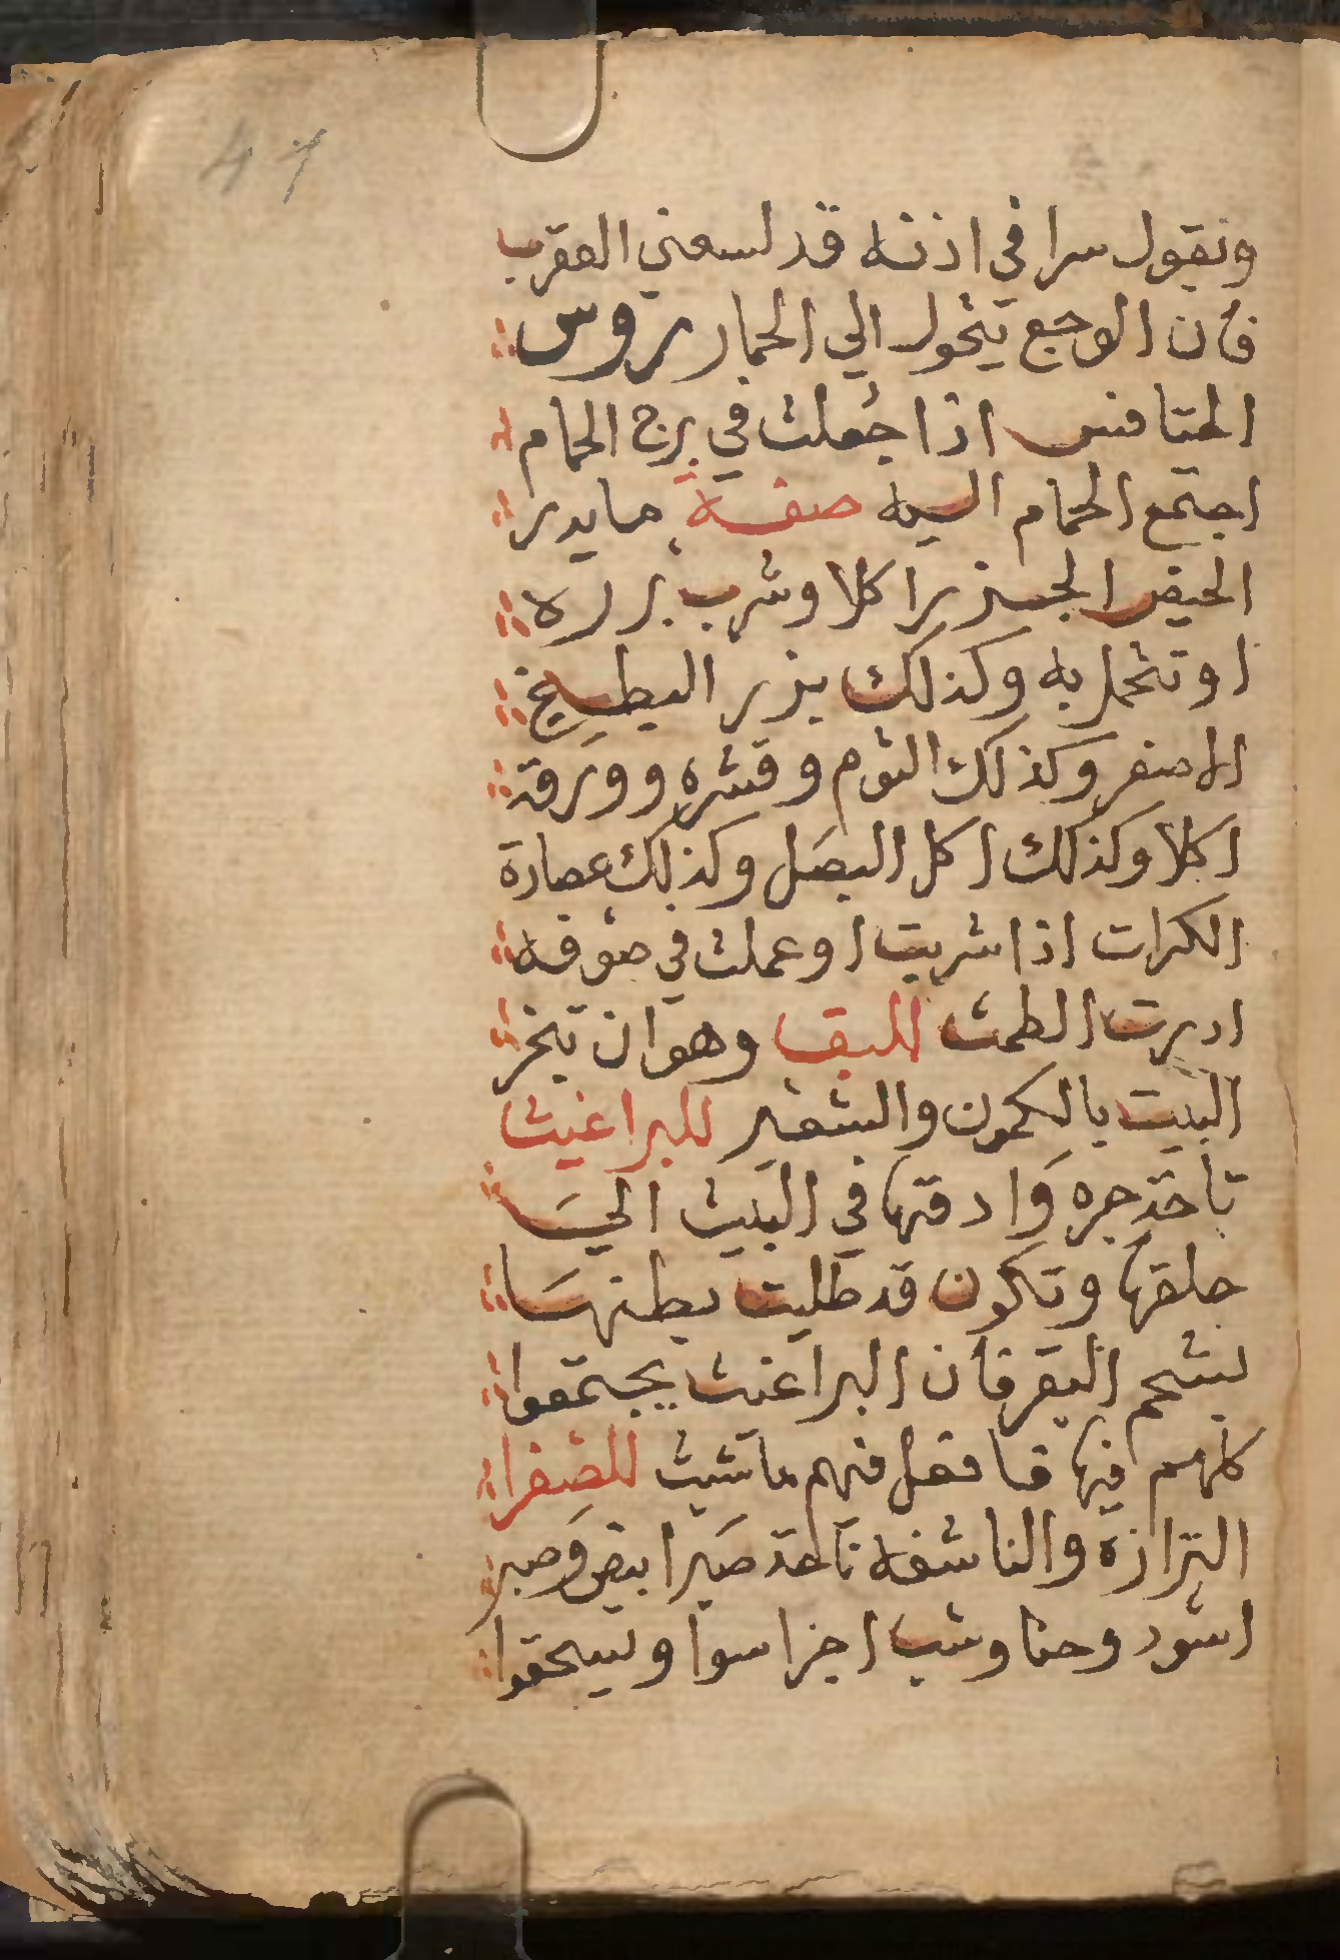 47
وتقول سرا في اذنه قد لسعني العقرب
فان الوجع يتحول الي الحمار روس
الخنافس اذا جعلت في برج الحمام
اجتمع الحمام اليه صفة ما يدر
الحيض الجزر اكلا وشرب بزره
او تتحمل به وكذلك بزر البطيخ
الاصفر وكذلك الثوم وقشره وورقة
اكلا وكذلك اكل البصل وكذلك عصارة
الكرات اذا شربت او عملت في صوفه
ادرت الطمث للبق وهو ان تبخر
البيت بالكمون والشعير للبراغيث
تاخذ جره وادفنها في البيت الي
حلقها وتكون قد طليت بطنها
بشحم البقر فان البراغيث يجتمعوا
كلهم فيها فافعل فيهم ما شيت للصفرا
النزازة والناشفه تاخذ صبر ابيض وصبر
اسود وحنا وشب اجزا سوا ويسحقوا